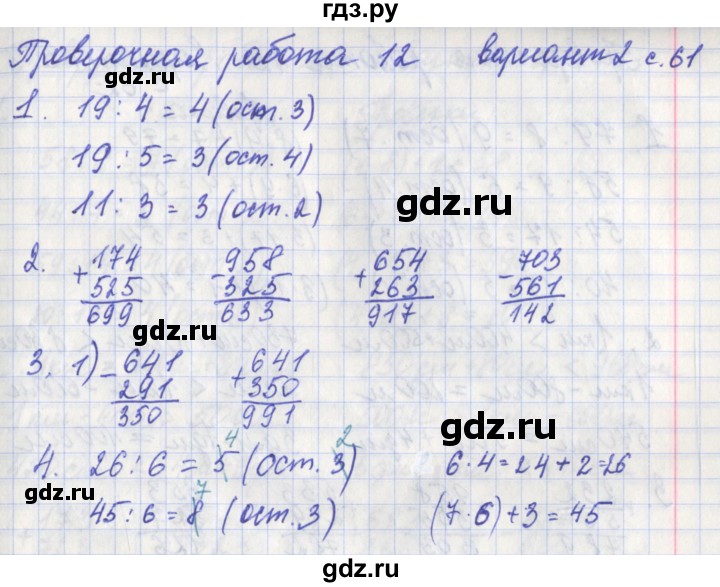 гдз.ру
Проверочная работа 12 вариант 2 с. 61
gdz.ru gdz.ru
1. 19 : 4 = 4 (ост. 3)
19 : 5 = 3 (ост. 4)
11 : 3 = 3 (ост. 2)
gdz.ru gdz.ru
2. +174 -958 +654 -703
525 325 263 561
699 633 917 142
gdz.ru
3. 1) -641 +641
291 350
350 991
gdz.ru gdz.ru
4 2
4. 26 : 6 = 5 (ост. 3) 6 · 4 = 24 + 2 = 26
7
45 : 6 = 8 (ост. 3) (7 · 6) + 3 = 45
gdz.ru gdz.ru